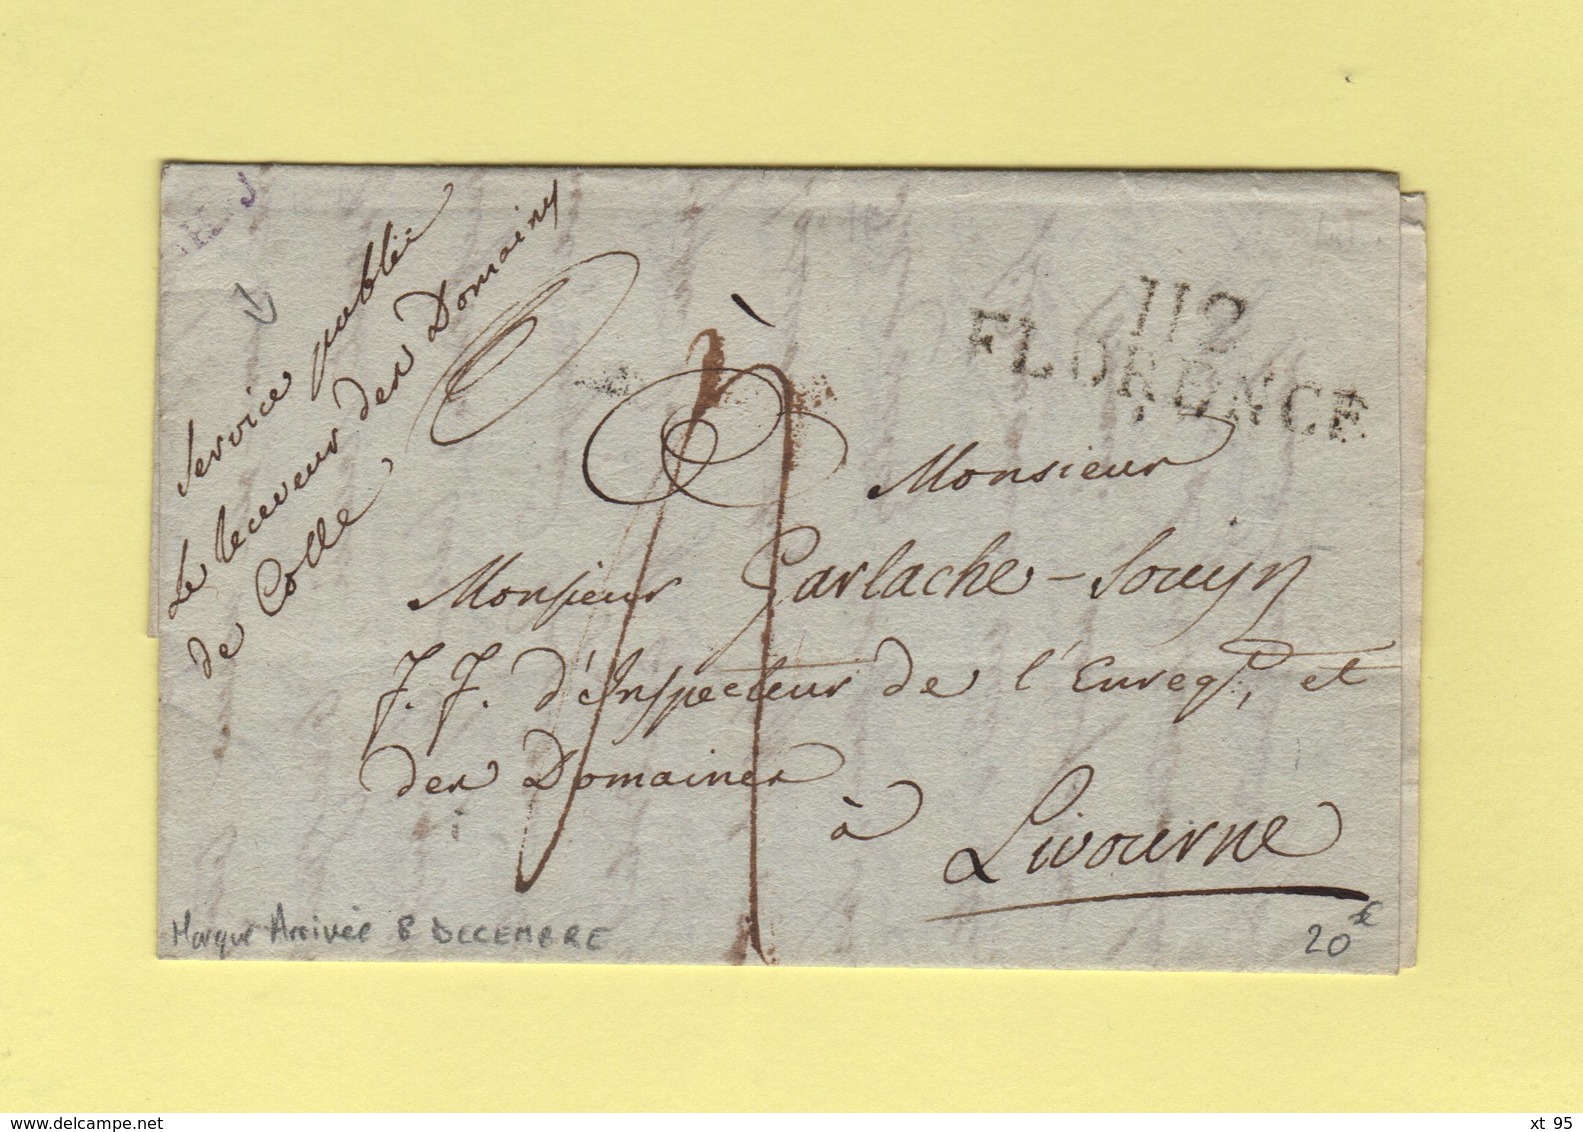 Service publié
Le receveur des Domaines
de Colle
112
FLORENCE
à
Monsieur
Monsieur Garlache-Souijn
J. J. d'Inspecteur de l'Enregt, et
des Domaines
à
Livourne
Marque Arrivée 8 DECEMBRE
20€
www.delcampe.net
xt 95